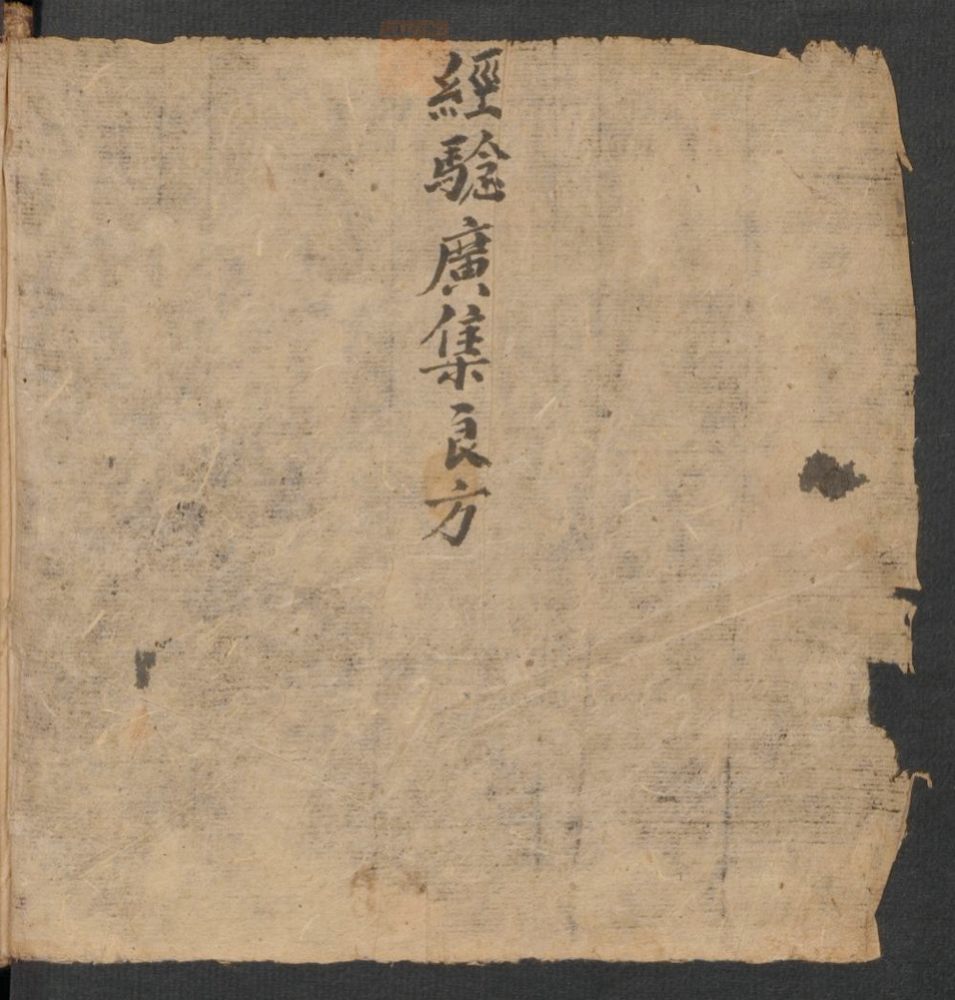 經騐廣集良方